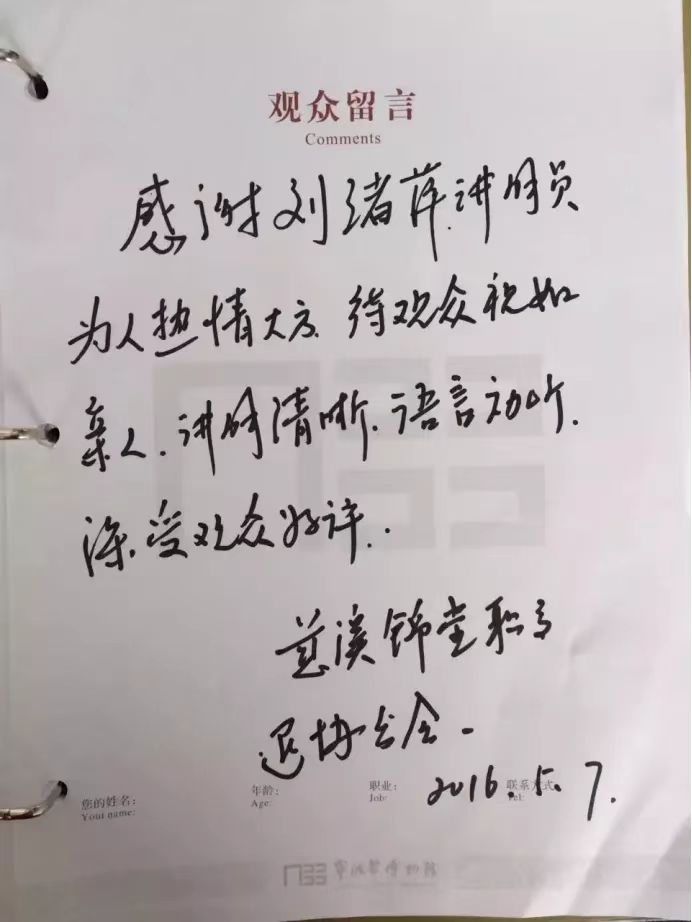 观众留言
Comments
感谢刘绪萍讲解员
为人热情大方.待观众视如
亲人.讲解清晰.语言动听.
深受观众好评..
慈溪锦堂职高
退协分会.
2016.5.7.
您的姓名:
Your name:
年龄:
Age:
职业:
Job:
联系方式:
Tel:
宁波帮博物馆